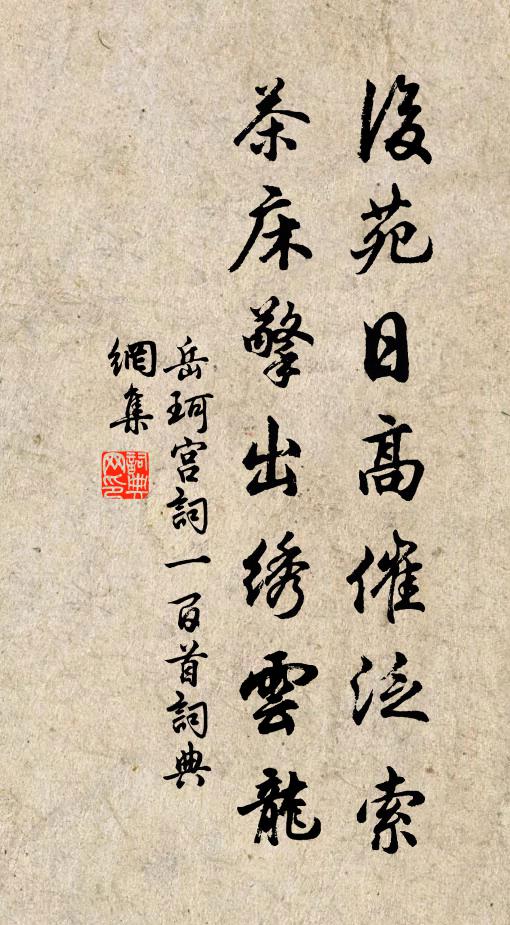 後苑日高催泛索
茶床擎出绣雲龍
岳珂宫詞一百首詞典
網集
詞典
网印